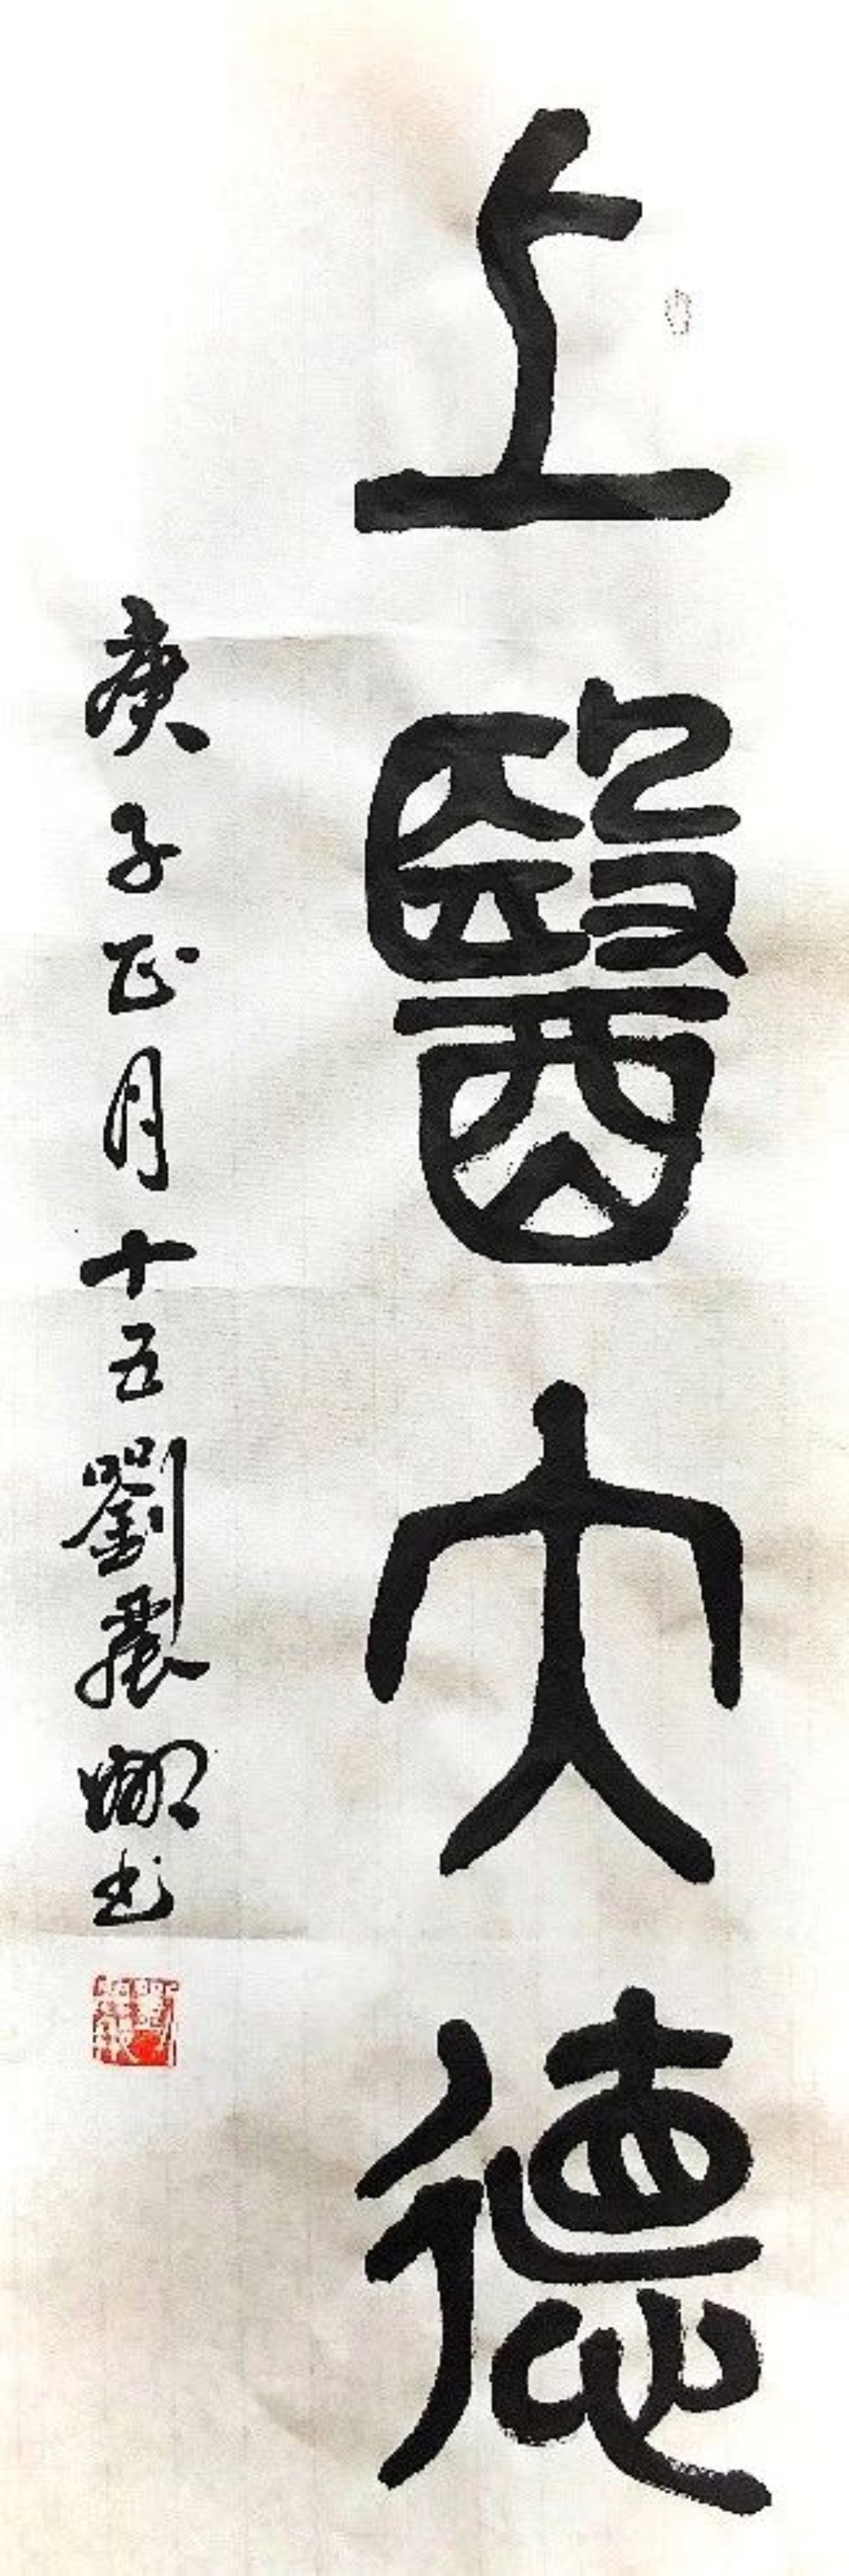 上醫大德
庚子正月十五劉震卿书